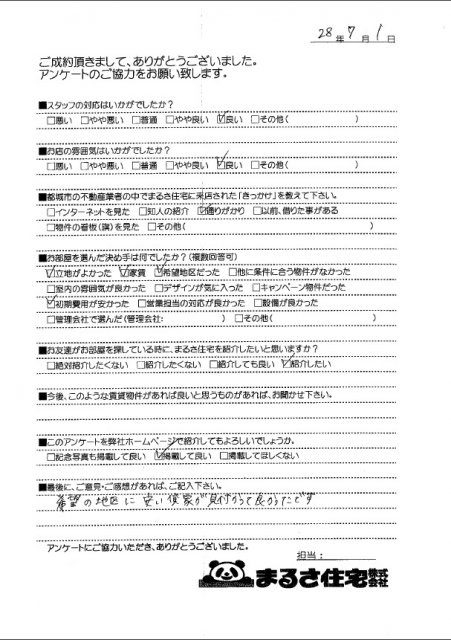 28年 7月 1日
ご成約頂きまして、ありがとうございました。
アンケートのご協力をお願い致します。
■スタッフの対応はいかがでしたか？
□悪い □やや悪い □普通 □やや良い ☑良い □その他( )
■お店の雰囲気はいかがでしたか？
□悪い □やや悪い □普通 □やや良い ☑良い □その他( )
■都城市の不動産業者の中でまるさ住宅に来店された「きっかけ」を教えて下さい。
□インターネットを見た □知人の紹介 ☑通りがかり □以前、借りた事がある
□物件の看板(旗)を見た □その他( )
■お部屋を選んだ決め手は何でしたか？(複数回答可)
☑立地がよかった ☑家賃 ☑希望地区だった □他に条件に合う物件がなかった
□室内の雰囲気が良かった □デザインが気に入った □キャンペーン物件だった
☑初期費用が安かった □営業担当の対応が良かった □設備が良かった
□管理会社で選んだ(管理会社: ) □その他( )
■お友達がお部屋を探している時に、まるさ住宅を紹介したいと思いますか？
□絶対紹介したくない □紹介したくない □紹介しても良い ☑紹介したい
■今後、このような賃貸物件があれば良いと思うものがあれば、お聞かせ下さい。
■このアンケートを弊社ホームページで紹介してもよろしいでしょうか。
□記念写真も掲載して良い ☑掲載して良い □掲載してほしくない
■最後に、ご意見・ご感想があれば、ご記入下さい。
希望の地区に安い借家が見付かって良かったです
アンケートにご協力いただき、ありがとうございました。
担当：
まるさ住宅株式会社